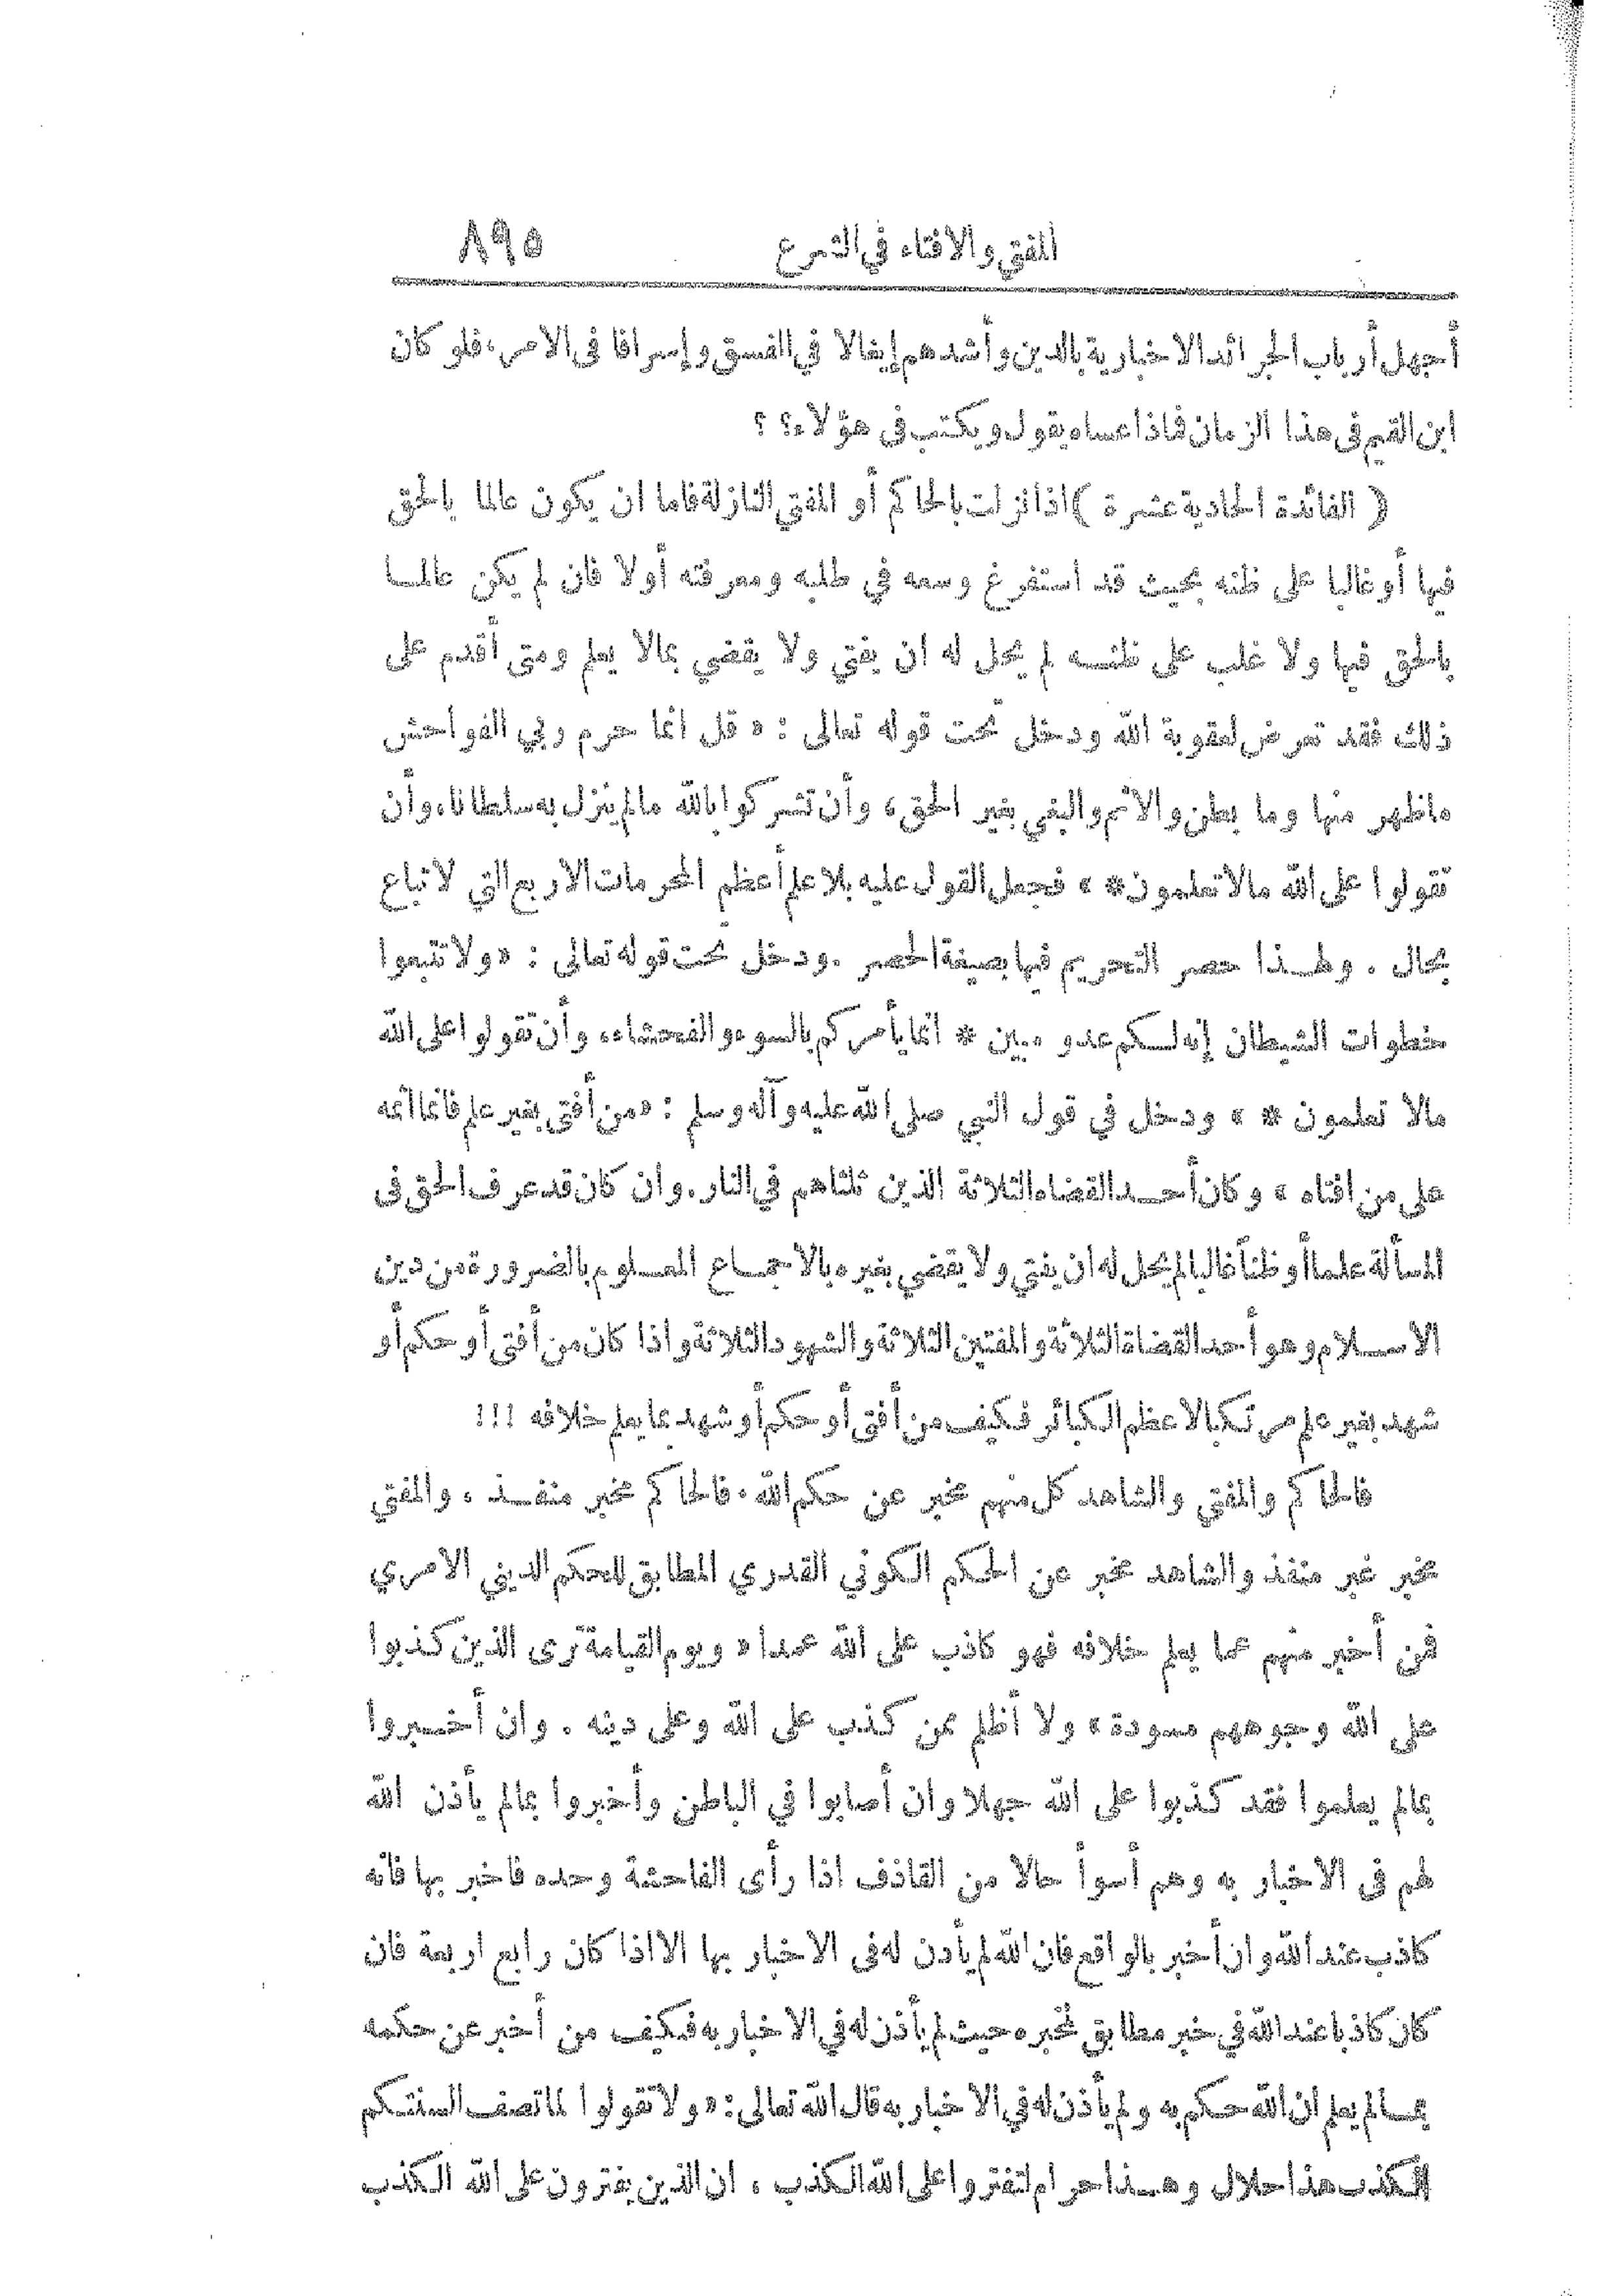 المفتي والافتاء في الشرع ٨٩٥
أجهل أرباب الجرائد الاخبارية بالدين وأشدهم إيغالا في الفسق وإسرافا في الامر، فلو كان
ابن القيم في هذا الزمان فماذا عساه يقول ويكتب في هؤلاء؟ ؟
( الفائدة الحادية عشرة ) اذا نزلت بالحاكم أو المفتي النازلة فاما ان يكون عالما بالحق
فيها أو غالبا على ظنه بحيث قد استفرغ وسعه في طلبه ومعرفته أولا فان لم يكن عالمــا
بالحق فيها ولا غلب على ظنــه لم يحل له ان يفتي ولا يقضي بمالا يعلم ومتى أقدم على
ذلك فقد تعرض لعقوبة الله ودخل تحت قوله تعالى : « قل انما حرم ربي الفواحش
ماظهر منها وما بطن والاثم والبغي بغير الحق، وأن تشركوا بالله مالم ينزل به سلطانا، وأن
تقولوا على الله مالا تعلمون* » فجعل القول عليه بلا علم أعظم المحرمات الاربع التي لا تباع
بحال . ولهــذا حصر التحريم فيها بصيغة الحصر .ودخل تحت قوله تعالى : «ولا تتبعوا
خطوات الشيطان إنه لـكم عدو مبين * انما يأمركم بالسوء والفحشاء، وأن تقولوا على الله
مالا تعلمون * » ودخل في قول النبي صلى الله عليه وآله وسلم : «من أفتى بغير علم فانما اثمه
على من افتاه » وكان أحــد القضاه الثلاثة الذين ثلثاهم في النار. وان كان قد عرف الحق فى
المسألة علما أو ظناً غالبا لم يحل له ان يفتي ولا يقضي بغيره بالاجمــاع المعــلوم بالضرورة من دين
الاســلام وهو أحد القضاة الثلاثة والمفتين الثلاثة والشهود الثلاثة واذا كان من أفتى أو حكم أو
شهد بغير علم مرتكبا لاعظم الكبائر فكيف من أفتى أو حكم أو شهد بما يعلم خلافه !!!
فالحاكم والمفتي والشاهد كل منهم مخبر عن حكم الله . فالحاكم مخبر منفــذ ، والمفتي
مخبر غير منفذ والشاهد مخبر عن الحكم الكوني القدري المطابق للحكم الديني الامري
فمن أخبر منهم عما يعلم خلافه فهو كاذب على الله عمدا « ويوم القيامة ترى الذين كذبوا
على الله وجوههم مسودة » ولا أظلم ممن كذب على الله وعلى دينه . وان أخــبروا
بمالم يعلموا فقد كذبوا على الله جهلا وان أصابوا في الباطن وأخبروا بمالم يأذن الله
لهم فى الاخبار به وهم أسوأ حالا من القاذف اذا رأى الفاحشة وحده فاخبر بها فانه
كاذب عند الله وان أخبر بالواقع فان الله لم يأذن له فى الاخبار بها الا اذا كان رابع اربعة فان
كان كاذبا عند الله في خبر مطابق لمخبره حيث لم يأذن له في الاخبار به فكيف من أخبر عن حكمه
بمــا لم يعلم ان الله حـكم به ولم يأذن له في الاخبار به قال الله تعالى : «ولا تقولوا لما تصف السنتـكم
الكذب هذا حلال وهــذا حرام لتفتروا على الله الكذب ، ان الذين يفترون على الله الكذب